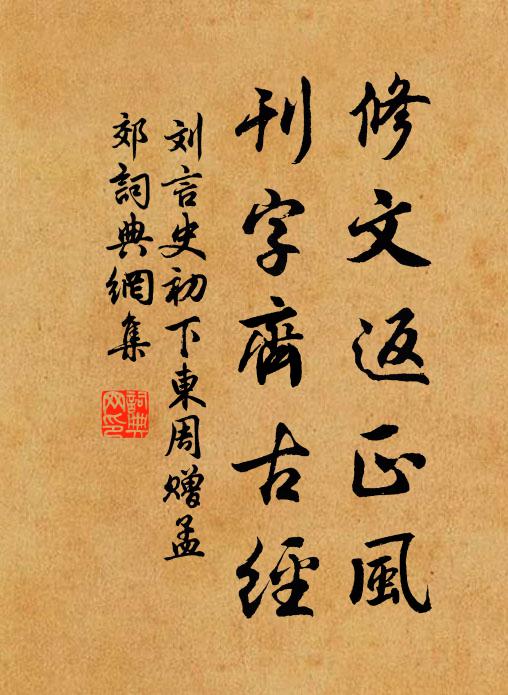 修文返正風
刊字齊古經
刘言史初下東周赠孟
郊詞典網集
詞典
网印